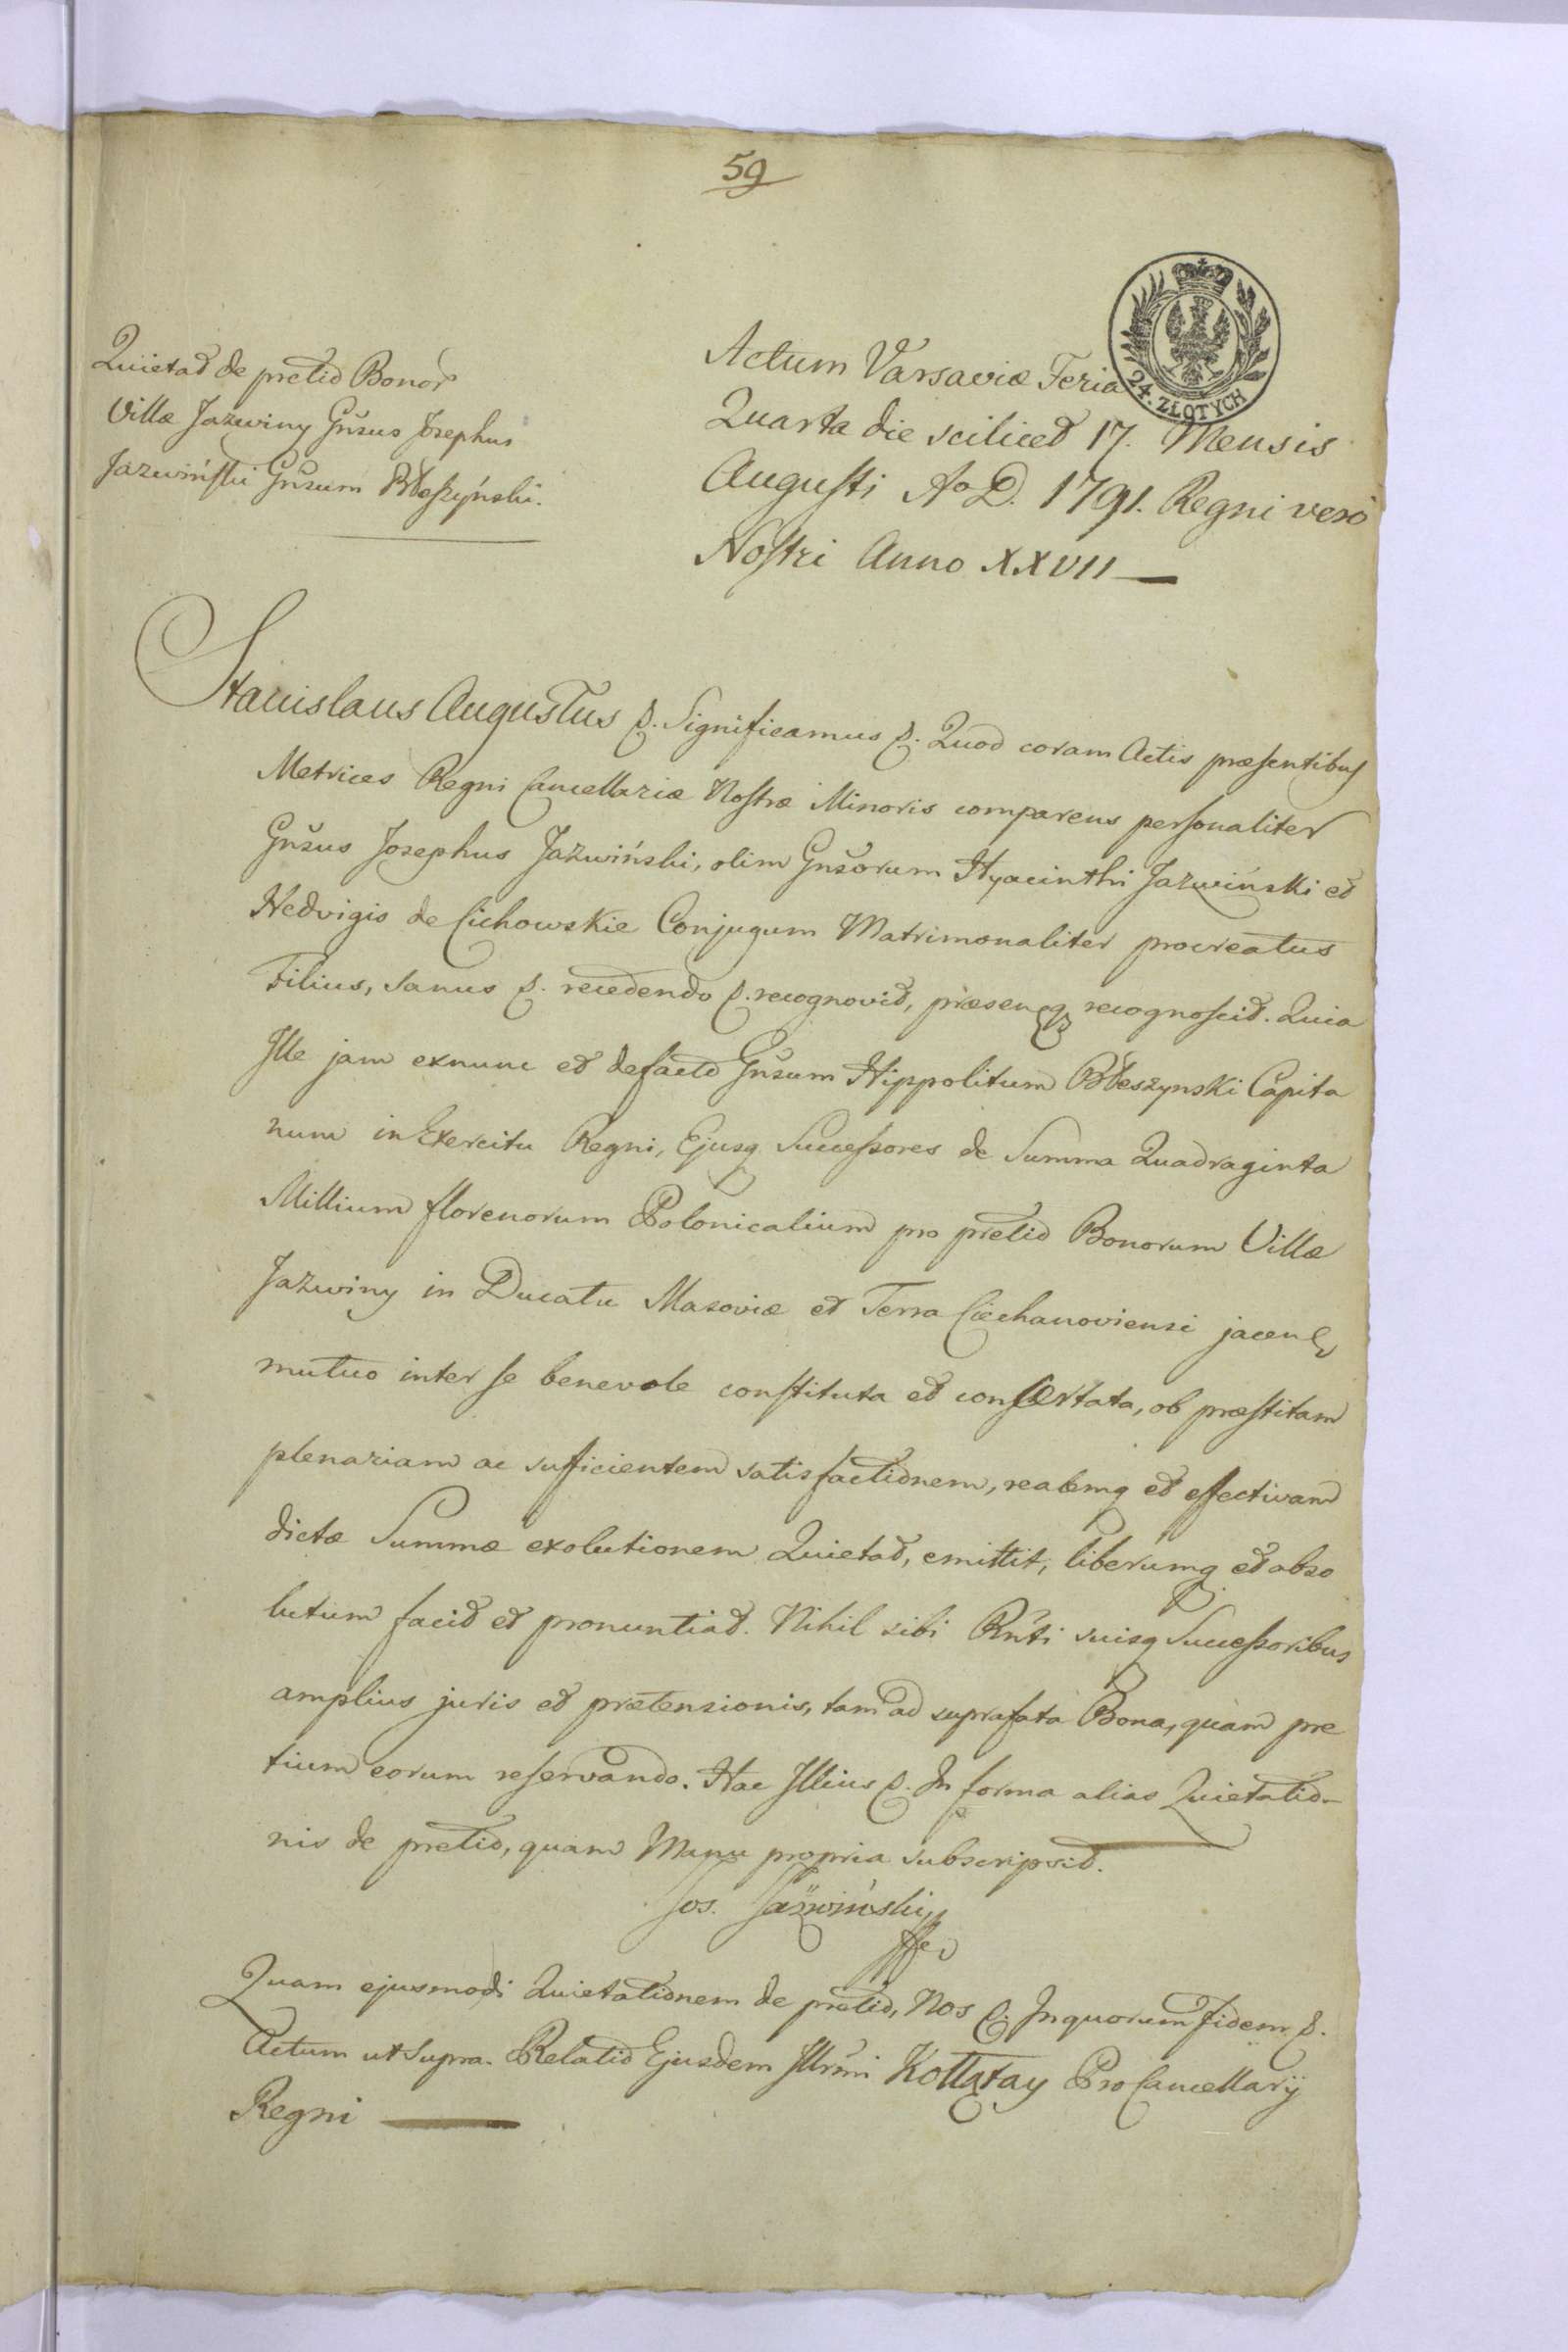 59
24. ZŁOTYCH
Quietat de pretio Bonor
Villæ Jazwiny Gñsus Josephus
Jazwiński Gñsum Błeszyński.
Actum Varsaviæ Feria
Quarta die scilicet 17. Mensis
Augusti Ao D. 1791. Regni verò
Nostri Anno XXVII
Stanislaus Augustus &. Significamus &. Quod coram Actis præsentibus
Metrices Regni Cancellariæ Nostræ Minoris comparens personaliter
Gñsus Josephus Jaźwiński, olim Gñsorum Hyacinthi Jazwiński et
Hedvigis de Cichowskie Conjugum Matrimonaliter procreatus
Filius, sanus &. recedendo &. recognovit, præsenq recognoscit. Quia
Ille jam exnunc et defacto Gñsum Hippolitum Błeszynski Capita
num in Exercitu Regni, Ejusq Successores de Summa Quadraginta
Millium florenorum Polonicalium pro pretio Bonorum Villæ
Jazwiny in Ducatu Masoviæ et Terra Ciechanoviensi jacen
mutuo inter se benevole constituta et consertata, ob præstitam
plenariam ac sufficientem satisfactionem, realemq et effectivam
dictæ Summæ exolutionem Quietat, emittit, liberumq et abso
lutum facit et pronuntiat. Nihil sibi Rñti suisq Successoribus
amplius juris et prætensionis, tam ad suprafata Bona, quàm pre
tium eorum reservando. Hac Illius &. In forma alias Quietatio-
nis de pretio, quam Manu propria subscripsit.
Jos. Jaźwiński
Quam ejusmodi Quietationem de pretio, Nos &. In quorum Fidem &.
Actum ut Supra. Relatio Ejusdem Illr̃mi Kołłątay ProCancellarij
Regni